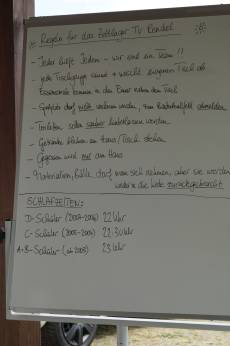 Regeln für das Zeltlager TV Rendel
- Jeder hilft Jedem - wir sind ein Team !!
- jede Tischgruppe räumt + wischt eigenen Tisch ab
Essensreste kommen in den Eimer neben dem Tisch
- Spielplatz darf nicht verlassen werden, zum abmelden
- Toiletten sauber hinterlassen werden
- Getränke bleiben am Haus/Tisch stehen
- Gegessen wird nur am Haus
- Materialien, Bälle darf man sich nehmen, aber sie werden
wieder in die Kiste zurückgebracht
SCHLAFZEITEN:
D-Schüler (2007-2006) 22 Uhr
C-Schüler (2005-2004) 22.30 Uhr
A+B-Schüler (ab 2003) 23 Uhr